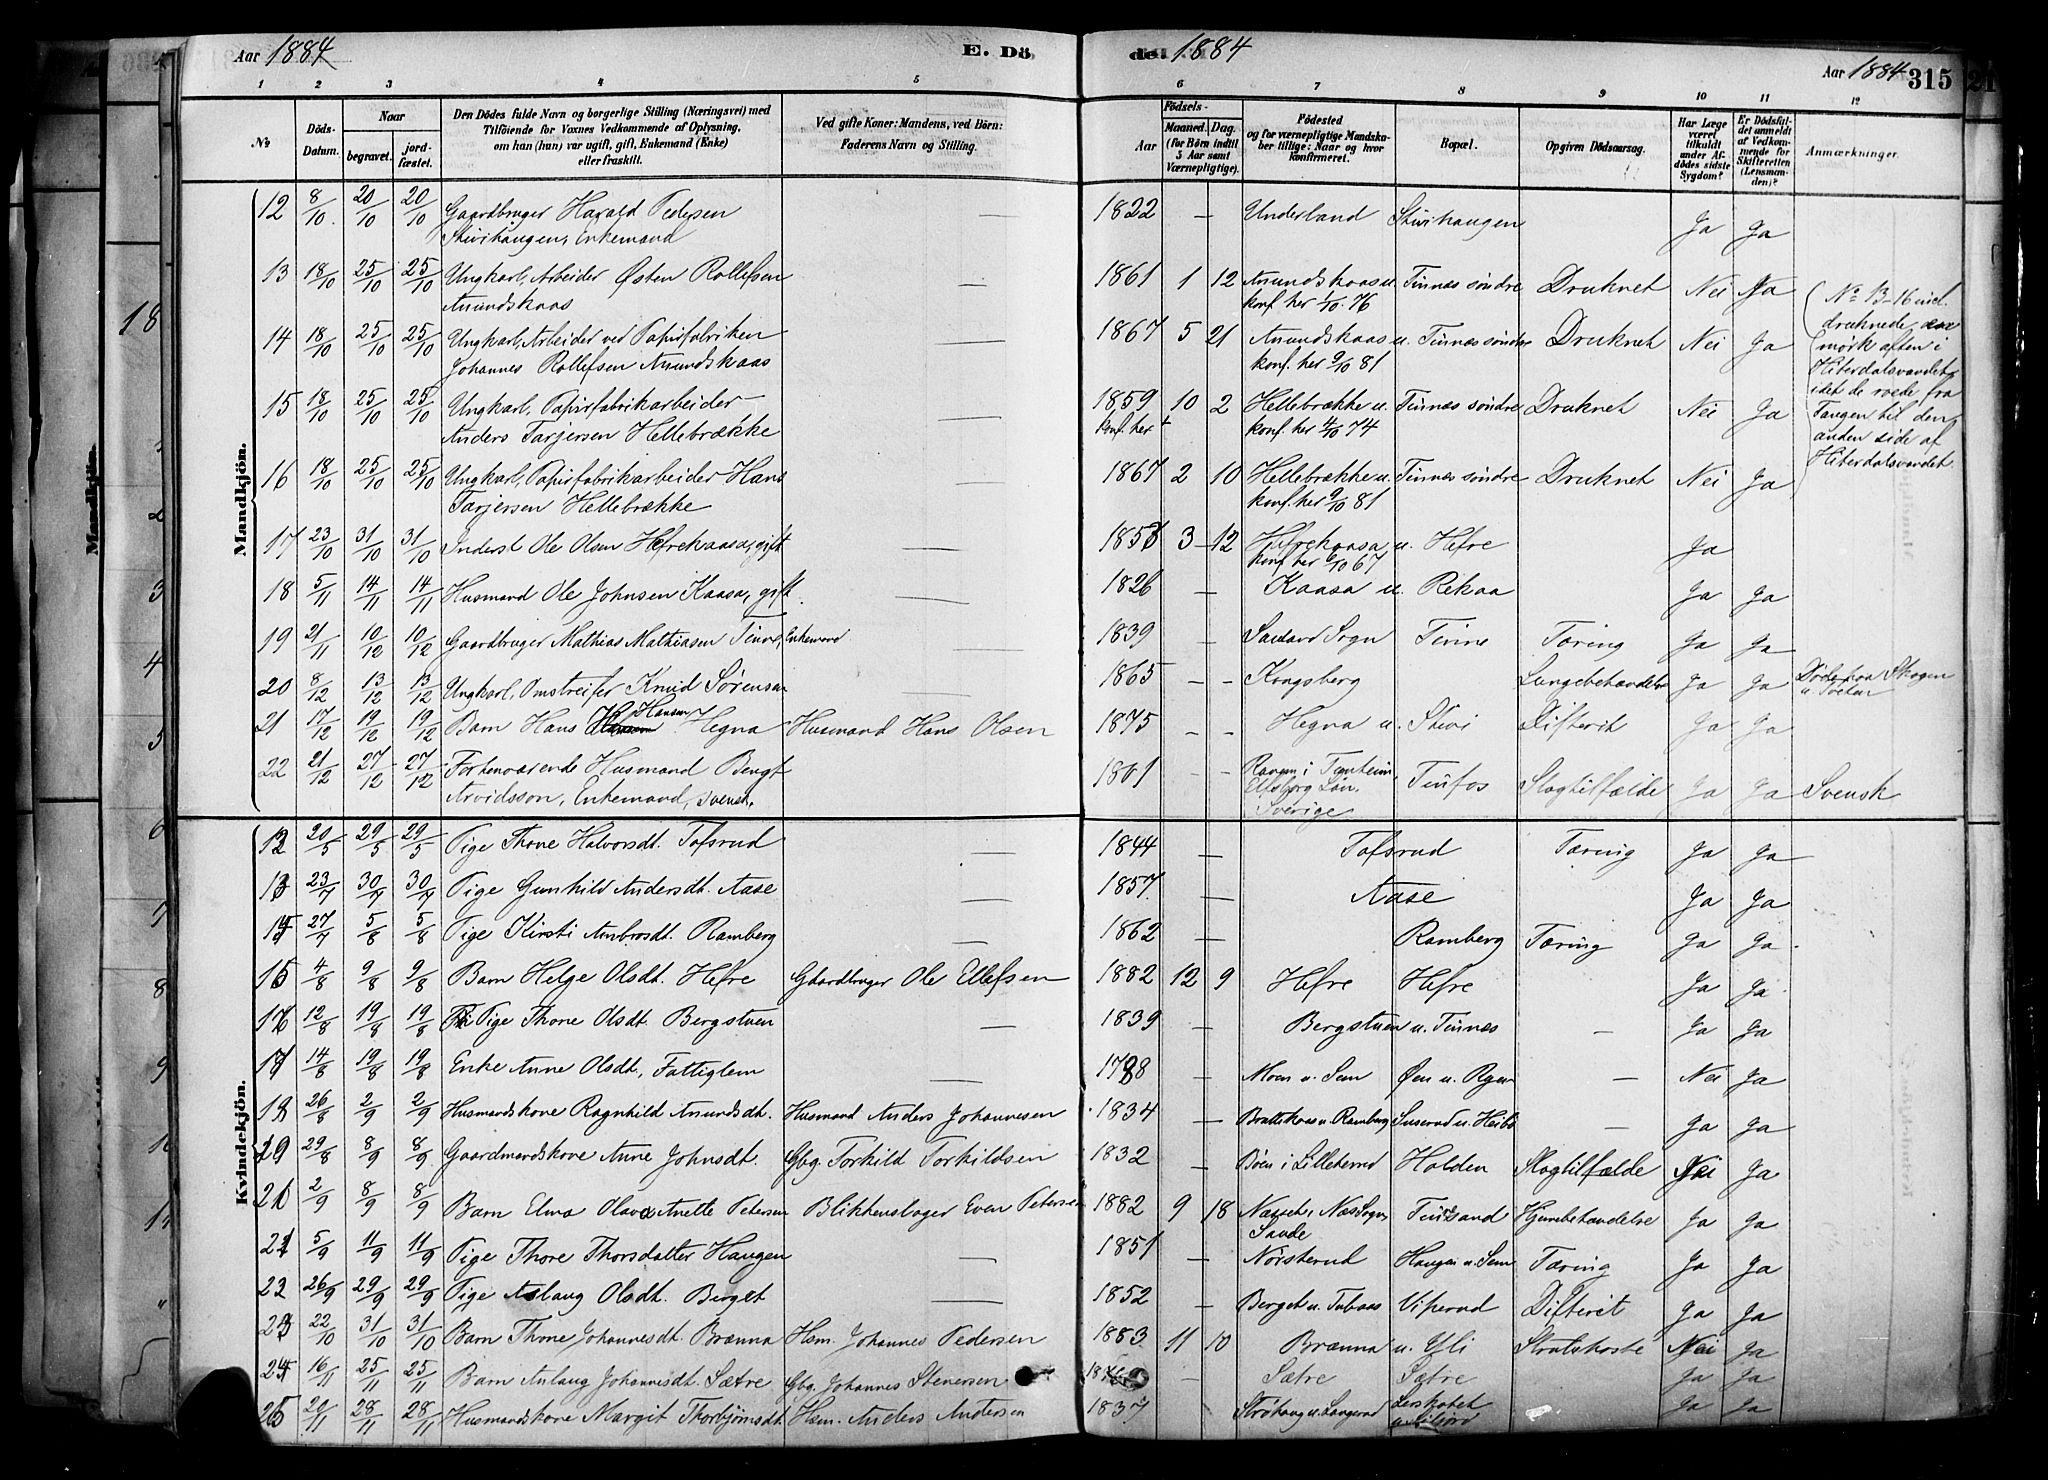 Aar 1884
E. Dö
de. 1884
Aar 1884 315
1 2 3 4 5 6 7 8 9 10 11 12
No
Döds-Datum.
Naar
begravet.
jord-fæstet.
Den Dödes fulde Navn og borgerlige Stilling (Næringsvei) med
Tilföiende for Voxnes Vedkommende af Oplysning,
om han (hun) var ugift, gift, Enkemand (Enke)
eller fraskilt.
Ved gifte Koner: Mandens, ved Börn:
Faderens Navn og Stilling.
Födsels-
Aar
Maaned. Dag.
(for Börn indtil
5 Aar samt
Værnepligtige).
Födested
og for værnepligtige Mandska-
ber tillige: Naar og hvor
konfirmeret.
Bopæl.
Opgiven Dödsaarsag.
Har Læge
været
tilkaldt
under Af-
dödes sidste
Sygdom?
Er Dödsfal-
det anmeldt
af Vedkom-
mende for
Skifteretten
(Lensman-
den)?
Anmærkninger.
Mandkjön.
12 8/10 20/10 20/10 Gaardbruger Harald Pedersen 1822 — Underland Stivihaugen Ja Ja
Stivihaugen, Enkemand
13 18/10 25/10 25/10 Ungkarl, Arbeider Østen Rollefsen — 1861 1 12 Amundskaas u. Tinnes søndre Druknet Nei Ja
Amundskaas konf. her 1/10 76
14 18/10 25/10 25/10 Ungkarl, Arbeider ved Papirfabriken — 1867 5 21 Amundskaas u. Tinnes søndre Druknet Nei Ja
Johannes Rollefsen Amundskaas konf. her 9/10 81
15 18/10 25/10 25/10 Ungkarl, Papirfabrikarbeider — 1859 10 2 Hellebrække u. Tinnes søndre Druknet Nei Ja
Anders Tarjersen Hellebrække konf. her konf. her 4/10 74
16 18/10 25/10 25/10 Ungkarl, Papirfabrikarbeider Hans — 1867 2 10 Hellebrække u. Tinnes søndre Druknet Nei Ja
Tarjersen Hellebrække konf. her 9/10 81
No 13-16 incl.
druknede en
mørk aften i
Hiterdalsvandet
idet de roede fra
Tangen til den
anden side af
Hiterdalsvandet
17 23/10 31/10 31/10 Inderst Ole Olsen Hefrekaasa, gift — 3 12 Hefrekaasa u. Hefre Ja
konf her 6/10 67
18 5/11 14/11 14/11 Husmand Ole Johnsen Kaasa, gift. — 1826 — Kaasa u. Rekaa Ja Ja
19 21/11 10/12 10/12 Gaardbruger Mathias Mathiasen Tinne, Enkemand — 1839 — Sauland Sogn Tinne Tæring Ja Ja
20 8/12 13/12 13/12 Ungkarl, Omstreifer Knud Sørensen — 1865 - - Kongsberg Lungebetændelse Ja Ja Døde paa Skogen
21 17/12 19/12 19/12 Barn Hans Hansen Hegna Husmand Hans Olsen 1875 - - Hegna u. Stivi Difterit Ja Ja
22 21/12 27/12 27/12 Forhenværende Husmand Bengt 1801 - - Tinfos Slagtilfælde Ja Ja Svensk
Arvidsson, Enkemand, svensk. Elfsborg Län, i Sverige
Kvindekjön.
12 20/5 29/5 29/5 Pige Thone Halvorsdt. Tofsrud — 1844 — Tofsrud Tæring Ja Ja
13 23/7 30/7 30/7 Pige Gunhild Andersdt. Aase — 1857. — Aase Ja Ja
27/7 5/8 5/8 Pige Kirsti Ambrosdt. Ramberg — 1862 — Ramberg Tæring Ja Ja
4/8 9/8 9/8 Barn Helge Olsdt. Hefre Gaardbruger Ole Ellefsen 1882 12 9 Hefre Hefre Ja Ja
12/8 19/8 19/8 Pige Thone Olsdt. Bergstuen — 1839 — Bergstuen u. Tinnes — Ja Ja
14/8 19/8 19/8 Enke Anne Olsdt, Fattiglem — 1788 — Moen u. Sem Øen u. Ryen — Nei Ja
26/8 2/9 2/9 Husmandskone Ragnhild Amundsdt. Husmand Anders Johannesen 1834 — Brattekaas u. Ramberg Suserud u. Heibø — Ja Ja
29/8 8/9 8/9 Gaardmandskone Anne Johnsdt. Gbg. Torkild Torkildsen 1832 — Bøen i Lilleherred Holden Slagtilfælde Nei Ja
2/9 8/9 8/9 Barn Elma Olava Anette Petersen Blikkenslager Even Petersen 1882 9 18 Næsset i Næs Sogn, Tinnesand Hjernebetændelse Ja Ja
Saude
5/9 11/9 11/9 Pige Thore Thorsdatter Haugen — 1851 — Nørsterud Haugen u. Sem Tæring Ja Ja
26/9 29/9 29/9 Pige Aslaug Olsdt. Berget — 1852 — Berget u. Tubaas Viperud Difterit Ja Ja
22/10 31/10 31/10 Barn Thone Johannesdt. Brænna Hsm. Johannes Pedersen 1883. 11 10 Brænna u. Yli Strubehoste Nei Ja
16/11 25/11 25/11 Barn Aslaug Johannesdt. Sætre Gbg. Johannes Stenersen — Sætre Sætre Ja Ja
20/11 28/11 28/11 Husmandskone Margit Thorbjørnsdt. Hsm. Anders Andersen 1837 — Ja Ja